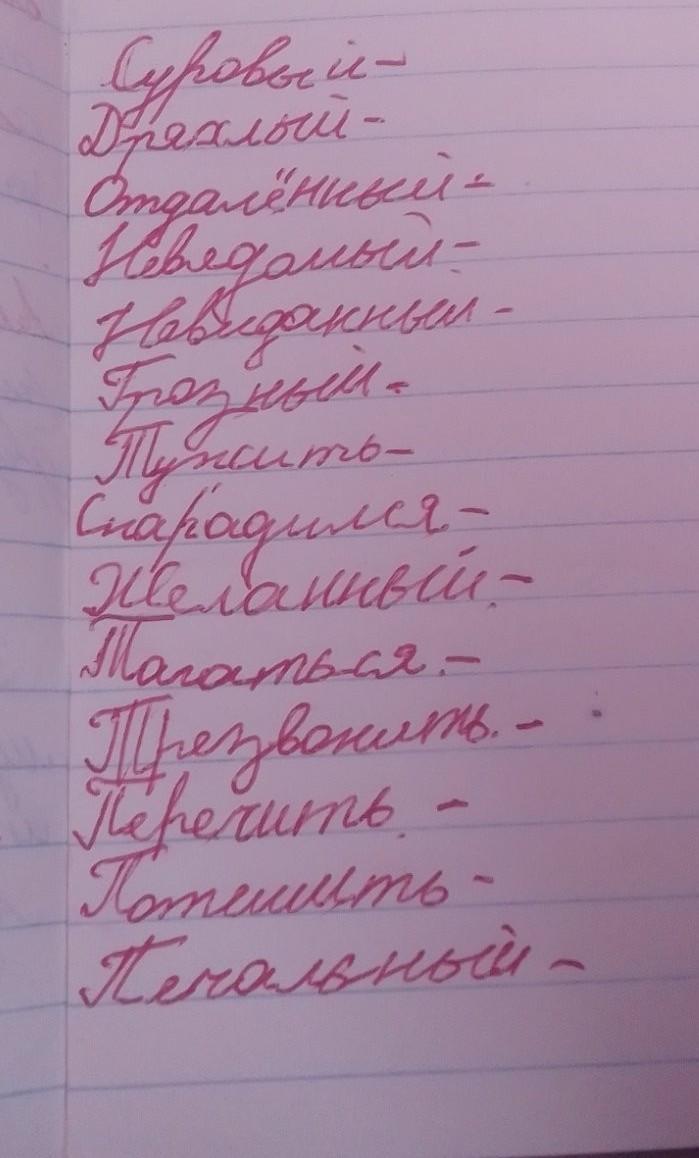 Суровый-
Дряхлый-
Отдалённый-
Невядомый-
Невиданный-
Грозный-
Тужить-
Снарадился-
Желанный-
Тягаться-
Трезвонить-
Перечить-
Потешить-
Печальный-